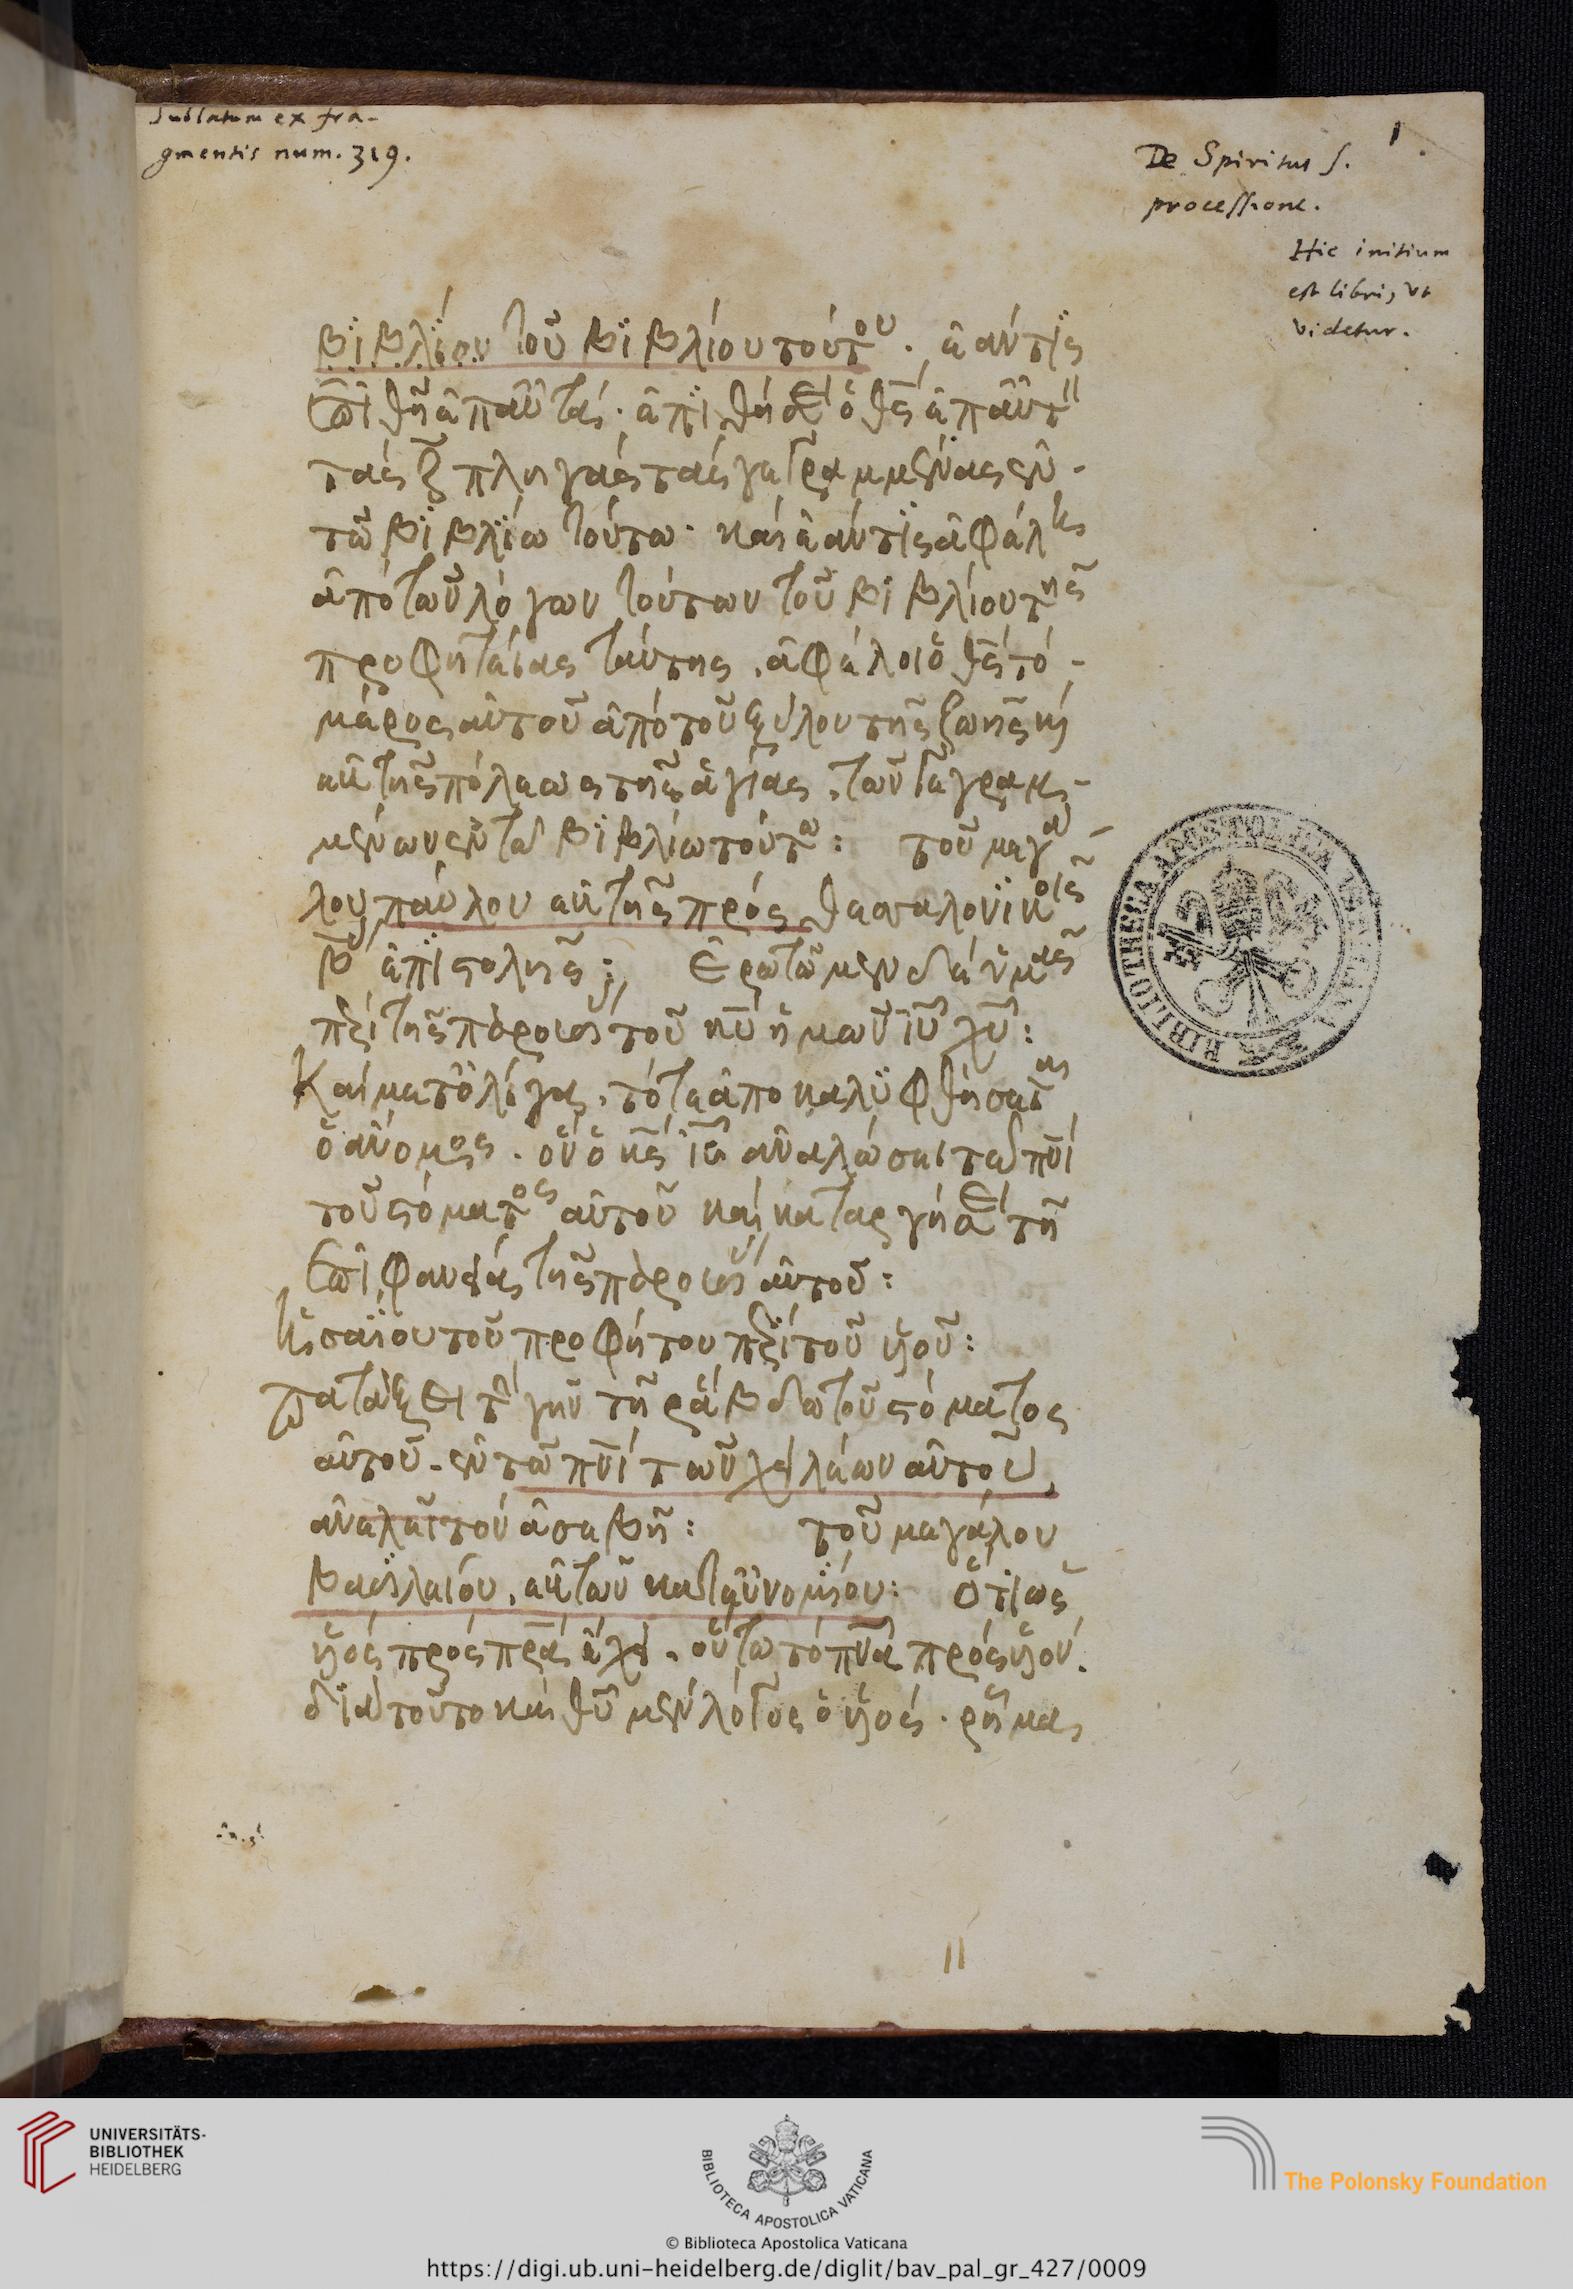 Sublatum ex fra-
gmentis num. 319.
1
De Spiritus S.
processione.
Hic initium
est libri, ut
videtur.
βϊβλΐου τοῦ βϊβλίου τούτου. ἐάν τϊς
ἐπιθῆ ἐπ αὐτάς. ἐπιθήσει ὁ θς ἐπ αὐτ
τάς ζ πληγάς τάς γεγραμμένας ἐν
τῶ βϊβλϊω τούτω. καί ἐάν τϊς ἀφέλης
ἀπό τῶν λόγων τούτων τοῦ βιβλίου τῆς
προφητείας ταύτης. ἀφέλοι ὁ θς τό
μέρος αὐτοῦ ἀπό τοῦ ξύλου τῆς ζωῆς κὶ
ἐκ τῆς πόλεως τῆς ἁγίας. τῶν γεγραμ-
μένων ἐν τῶ βϊβλίω τούτω: τοῦ μεγά
λου παύλου ἐκ τῆς πρός θεσσαλονϊκεῖς
β ἐπιστολῆς; Ἐρωτῶμεν δέ ὑμᾶς
περί τῆς παρουσίας τοῦ κυ ἡμῶν ιυ χυ:
Καί μετ ὀλίγα. τότε ἀποκαλϋφθήσεται
ὁ ἄνομος. ὅν ὁ κς ις ἀναλώσει τῶ πνι
τοῦ στόματος αὐτοῦ καί καταργήσει τῆ
ἐπιφανεία τῆς παρουσίας αὐτοῦ:
Ἠσαϊου τοῦ προφήτου περί τοῦ υἱοῦ:
πατάξει τήν γῆν τῆ ράβδω τοῦ στόματος
αὐτοῦ. ἐν τῶ πνι τῶν χειλέων αὐτοῦ,
ἀνελεῖ τόν ἀσεβῆ: τοῦ μεγάλου
Βασϊλείου. ἐκ τῶν κατ εὐνομΐου: Ὅτϊ ὡς
υἱός πρός πρα ἔχει. οὕτω τό πνα πρός υἱόν.
διά τοῦτο καί θυ μέν λόγος ὁ υἱός. ρῆμα
BIBLIOTHECA APOSTOLICA VATICANA
UNIVERSITÄTS-
BIBLIOTHEK
HEIDELBERG
BIBLIOTECA APOSTOLICA VATICANA
The Polonsky Foundation
© Biblioteca Apostolica Vaticana
https://digi.ub.uni-heidelberg.de/diglit/bav_pal_gr_427/0009